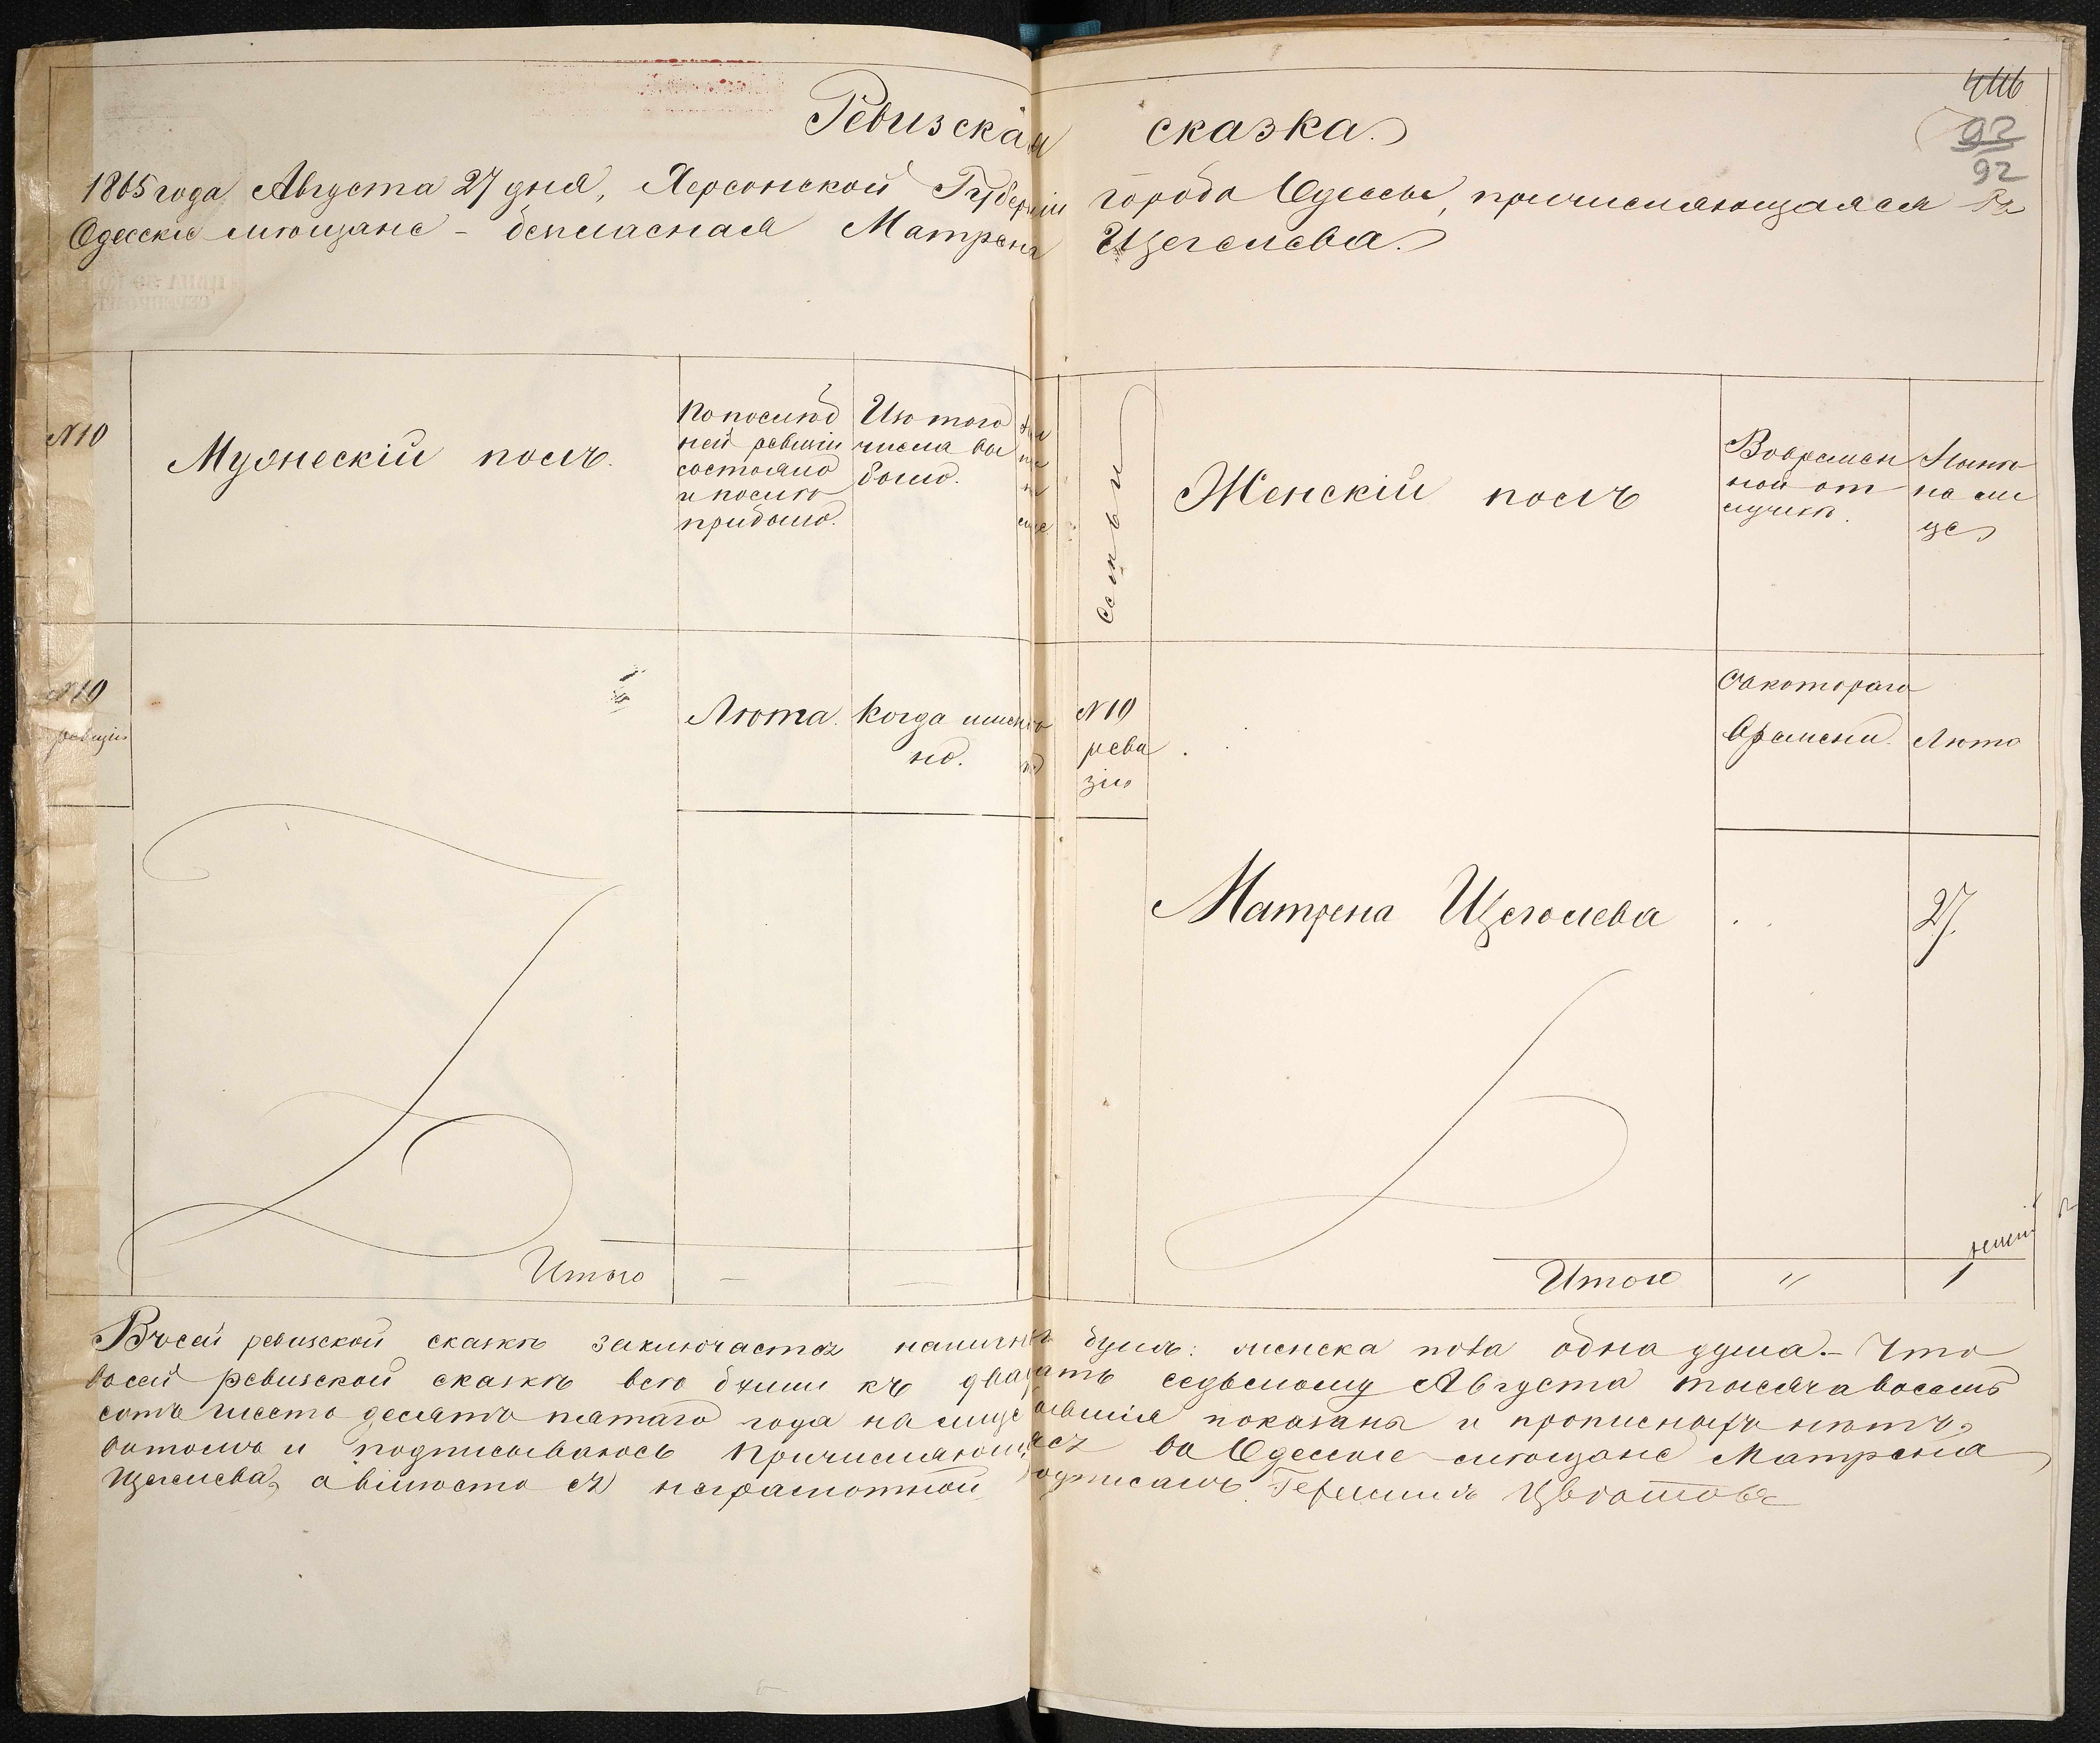 Ревизская сказка.
416
92
92
1865 года Августа 27 дня, Херсонской Губерніи города Одессы, причисляющаяся въ
Одесскіе мѣщане - безгласная Матрена Щеголева.
№10
Мужескій полъ.
По послѣд
ней ревизіи
состояло
и послѣ
прибыло.
Изъ того
числа вы
было.
Семьи
Женскій полъ
Во времен
ной от
лучкѣ.
Нынѣ
на ли
це
№10
ревизіи
Лѣта.
Когда имен
но.
№10
реви
зіи
Съ котораго
времени.
Лѣта
Матрена Щеголева
27.
Итого — —
Итого " 1
Въ сей ревизской сказкѣ заключается наличныхъ душъ: женска пола одна душа.- Что
въ сей ревизской сказкѣ всѣ души къ двадцать седьмому Августа тысяча восемь
сотъ шесть десятъ пятаго года на лице показаны и прописныхъ нѣтъ,
въ томъ и подписываюсь Причисляющаяся въ Одесскіе мѣщане Матрена
Щеголева, а вмѣсто ея неграмотной подписалъ